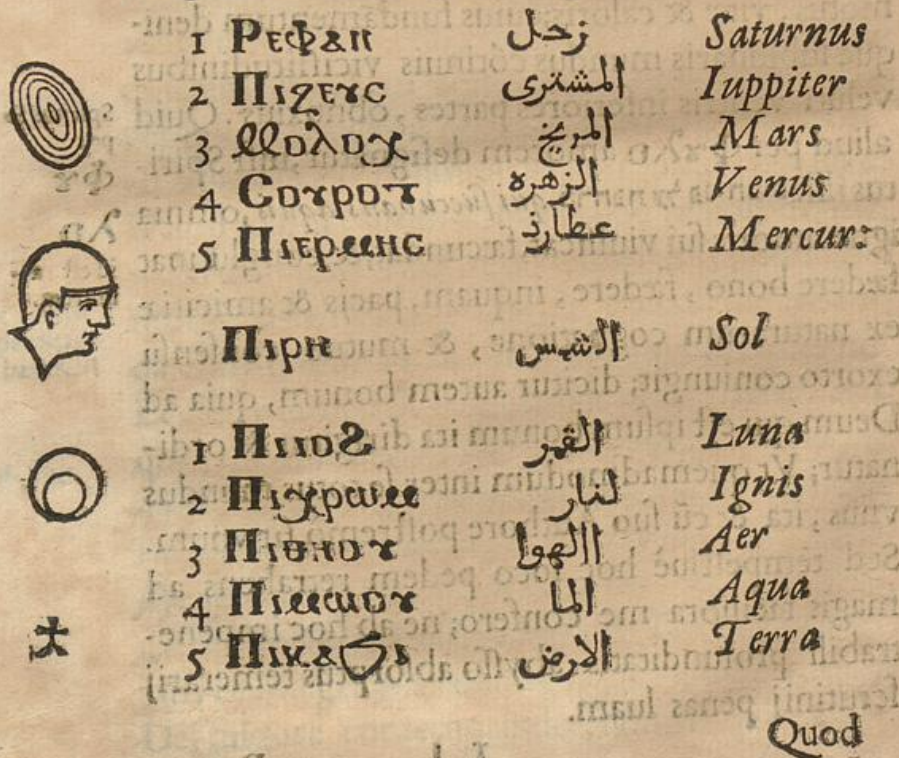 1 Ⲣⲉⲫⲁⲛ زحل Saturnus
2 Ⲡⲓⲍⲉⲩⲥ المشترى Iuppiter
3 Ⲙⲟⲗⲟⲭ المريخ Mars
4 Ⲥⲟⲩⲣⲟⲧ الزهره Venus
5 Ⲡⲓⲉⲣⲙⲏⲥ عطارد Mercur:
Ⲡⲓⲣⲏ الشمس Sol
1 Ⲡⲓⲓⲟϩ القمر Luna
2 Ⲡⲓⲭⲣⲱⲙ لنار Ignis
3 Ⲡⲓⲑⲏⲟⲩ االهوا Aer
4 Ⲡⲓⲙⲱⲟⲩ الما Aqua
5 Ⲡⲓⲕⲁϩⲓ الارض Terra
Quod